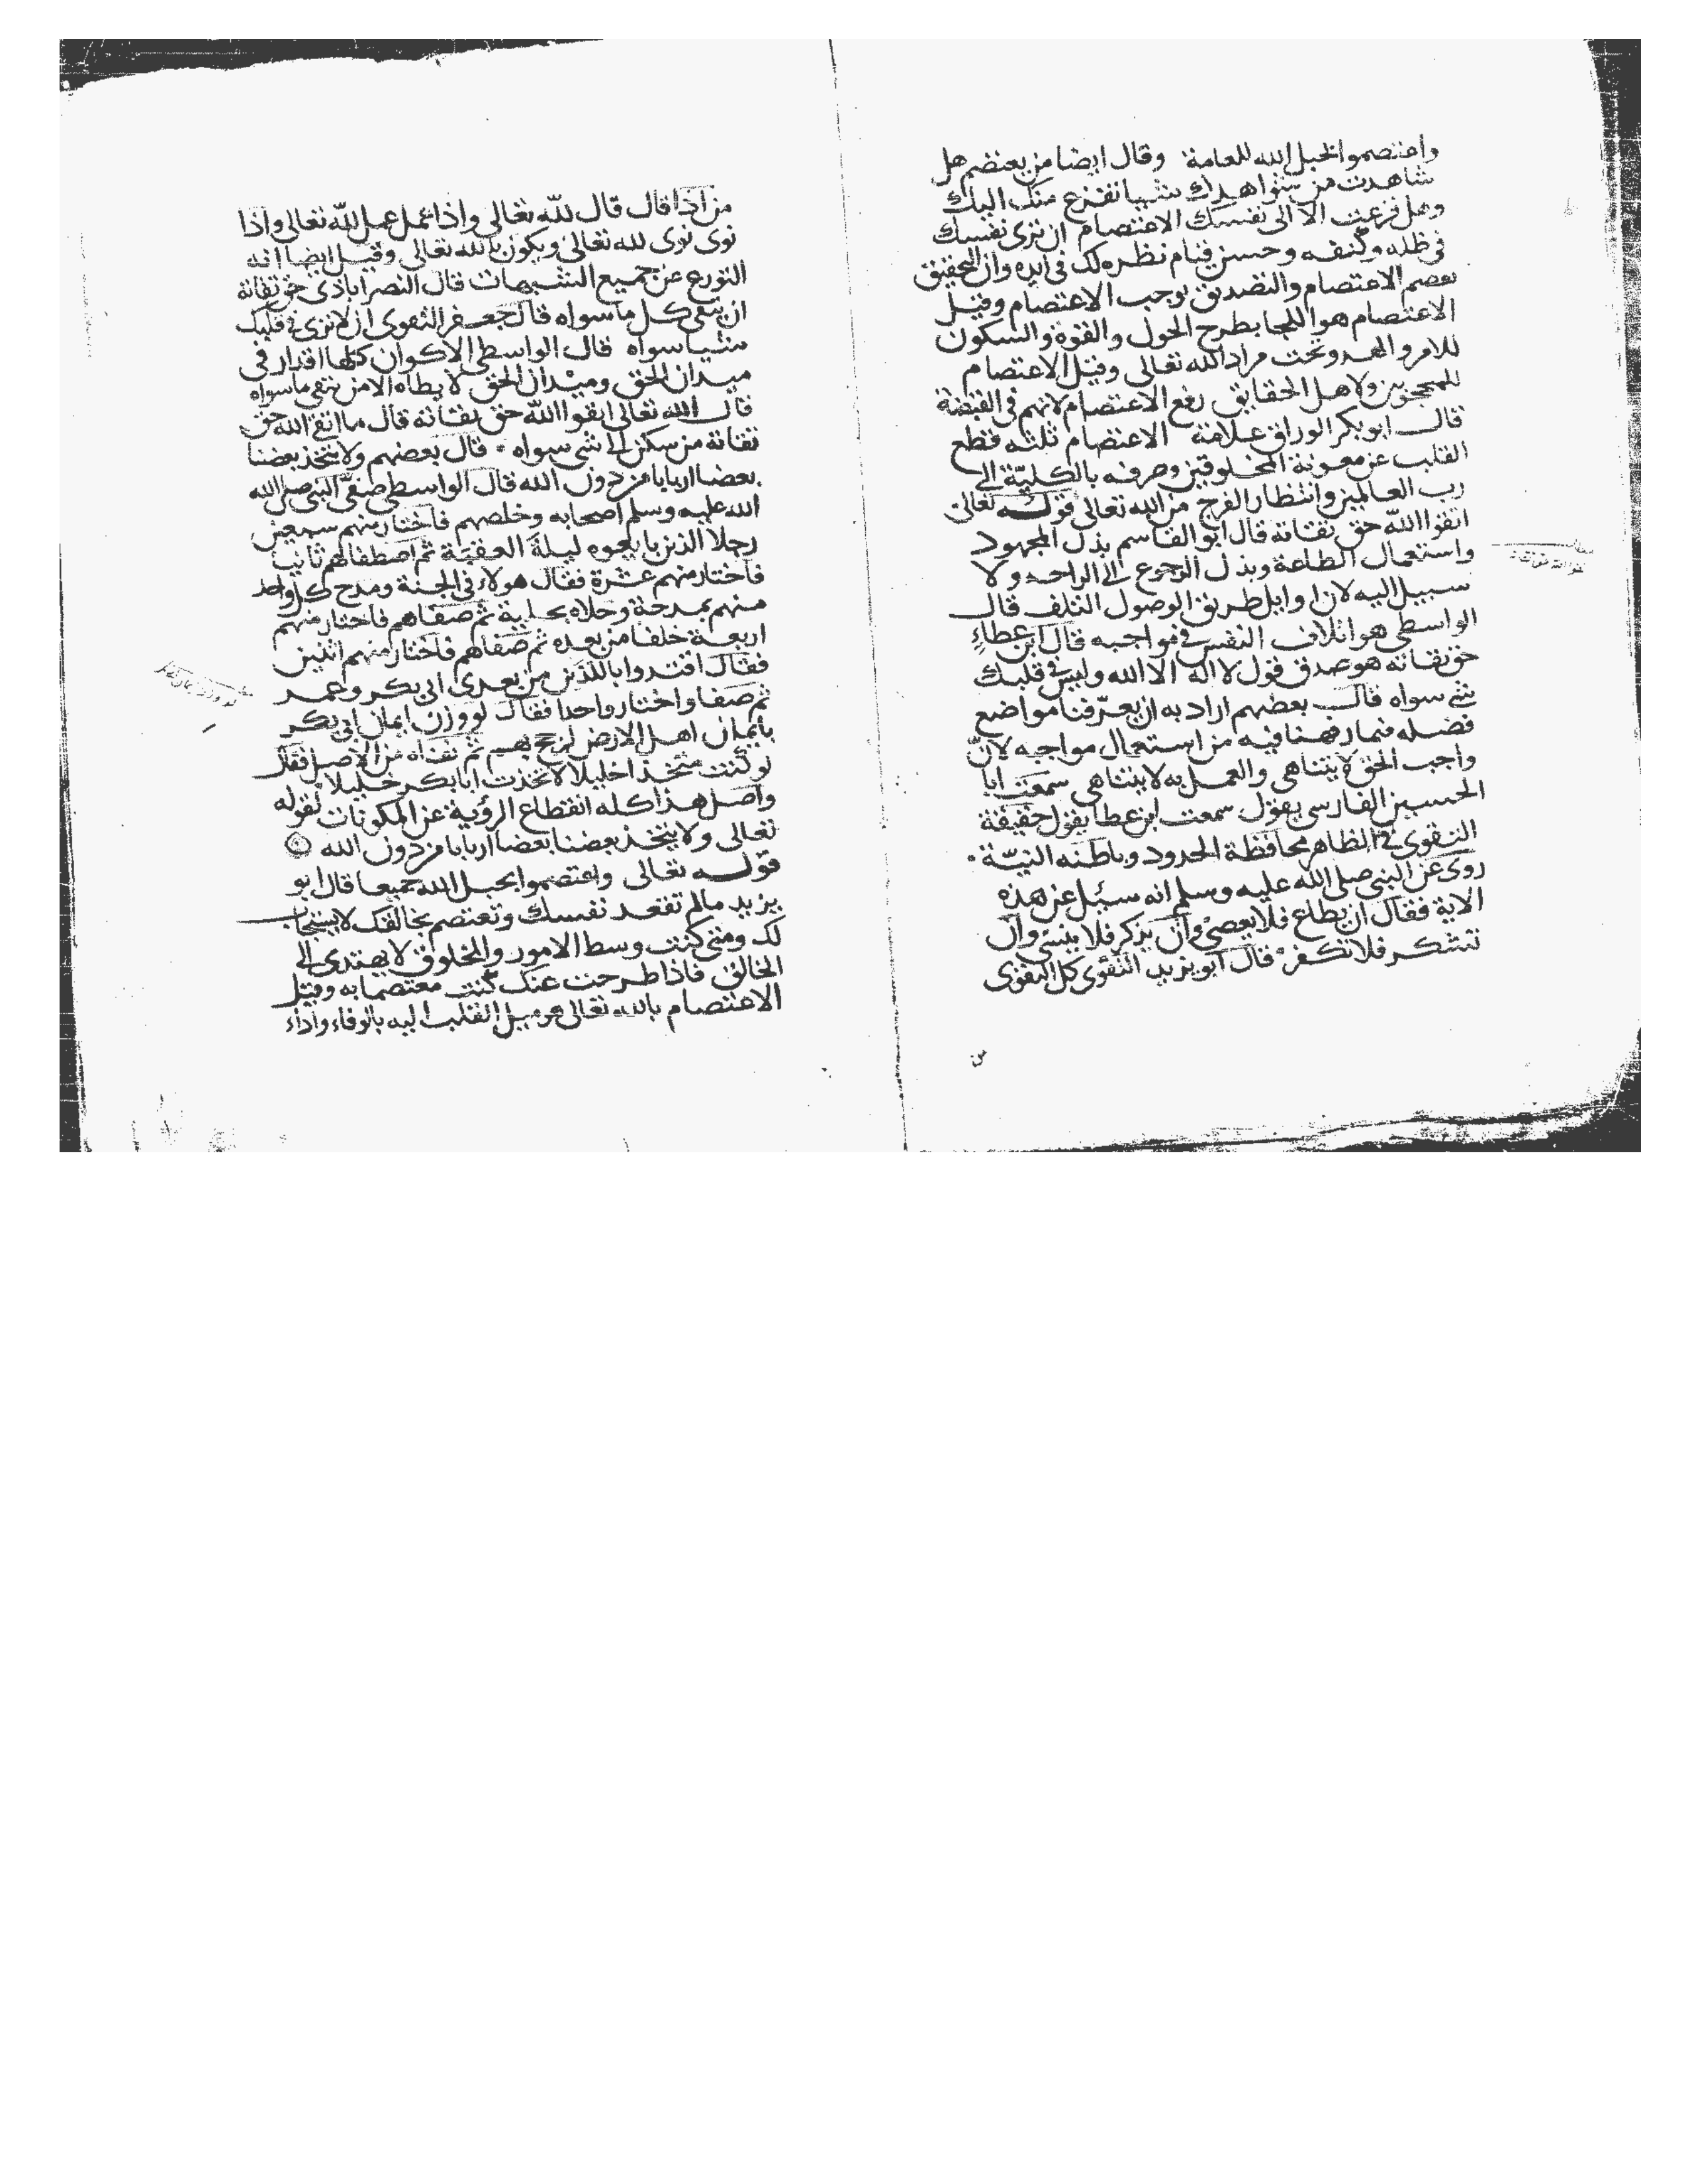 واعتصموا بحبل الله للعامة وقال ايضا من يعتصم هل
شاهدت من شواهدك شيا تفزع منك اليك
وهل فزعت الا الى نفسك الاعتصام ان ترى نفسك
في ظله وكنفه وحسن قيام نظره لك في ابده وان التحقيق
بعصم الاعتصام والتصديق يوجب الاعتصام وقيل
الاعتصام هو اللجا بطرح الحول والقوة والسكون
للامر والهدو تحت مراد الله تعالى وقيل الاعتصام
للمحجوبين ولاهل الحقايق رفع الاعتصام لانهم في القبضة
قال ابو بكر الوراق علامة الاعتصام ثلثه قطع
القلب عن معونة المخلوقين وصرفه بالكليّة الى
رب العالمين وانتظار الفرج من الله تعالى قوله تعالى
اتقوا الله حق تقاته قال ابو القاسم بذل المجهود
واستعمال الطاعة وبذل الرجوع الى الراحه ولا
سبيل اليه لان اوايل طريق الوصول التلف قال
الواسطى هو اتلاف النفس في مواجبه قال ابن عطاء
حق تقاته هو صدق قول لا اله الا الله وليس في قلبك
شي سواه قال بعضهم اراد به ان يعرّفنا مواضع
فضله فيما رفهنا فيه من استعمال مواجبه لانّ
واجب الحق لا يتناهى والعمل به لا يتناهى سمعت ابا
الحسين الفارسى يقول سمعت ابن عطا يقول حقيقة
التقوى في الظاهر محافظة الحدود وباطنه النيّة
روى عن النبى صلى الله عليه وسلم انه سيل عن هذه
الاية فقال ان يطاع فلا يعصى وان يذكر فلا ينسى وان
تشكر فلا تكفر قال ابو يزيد التقوى كل التقوى
من اذا قال قال لله تعالى واذا عمل عمل لله تعالى واذا
نوى نوى لله تعالى ويكون بالله تعالى وقيل ايضا انه
التورع عن جميع الشبهات قال النصراباذى حق تقاته
ان يتقى كل ما سواه قال جعفر التقوى ان لا ترى في قلبك
شيا سواه قال الواسطى الاكوان كلها اقدار فى
ميدان الحق وميدان الحق لا يطاه الا من يتقى ما سواه
قال الله تعالى اتقوا الله حق تقاته قال ما اتقى الله حق
تقاته من سكن الى شى سواه قال بعضهم ولا يتخذ بعضنا
بعضا اربابا من دون الله قال الواسطى صفىّ النبى صلى الله
الله عليه وسلم اصحابه وخلصهم فاختار منهم سبعين
رجلا الذين بايعوه ليلة العقبة ثم اصطفاهم ثانيا
فاختار منهم عشرة فقال هولاء في الجنة ومدح كل واحد
منهم بمدحة وحلاه بحلية ثم صفاهم فاختار منهم
اربعة خلفا من بعده ثم صفاهم فاختار منهم اثنين
فقال اقتدوا باللذين من بعدى ابى بكر وعمر
ثم صفا واختار واحدا فقال لو وزن ايمان ابى بكر
بايمان اهل الارض لرجح بهم ثم نفاه من الاصل فقال
لو كنت متخذا خليلا لاتخذت ابا بكر خليلا
واصل هذا كله انقطاع الرؤية عن المكونات لقوله
تعالى ولا يتخذ بعضنا بعضا اربابا من دون الله
قوله تعالى واعتصموا بحبل الله جميعا قال ابو
يزيد مالم تفقد نفسك وتعتصم بخالقك لا يستجاب
لك ومتى كنت وسط الامور والمخلوق لا يهتدى الى
الخالق فاذا طرحت عنك كنت معتصما به وقيل
الاعتصام بالله تعالى هو ميل القلب اليه بالوفاء واداء